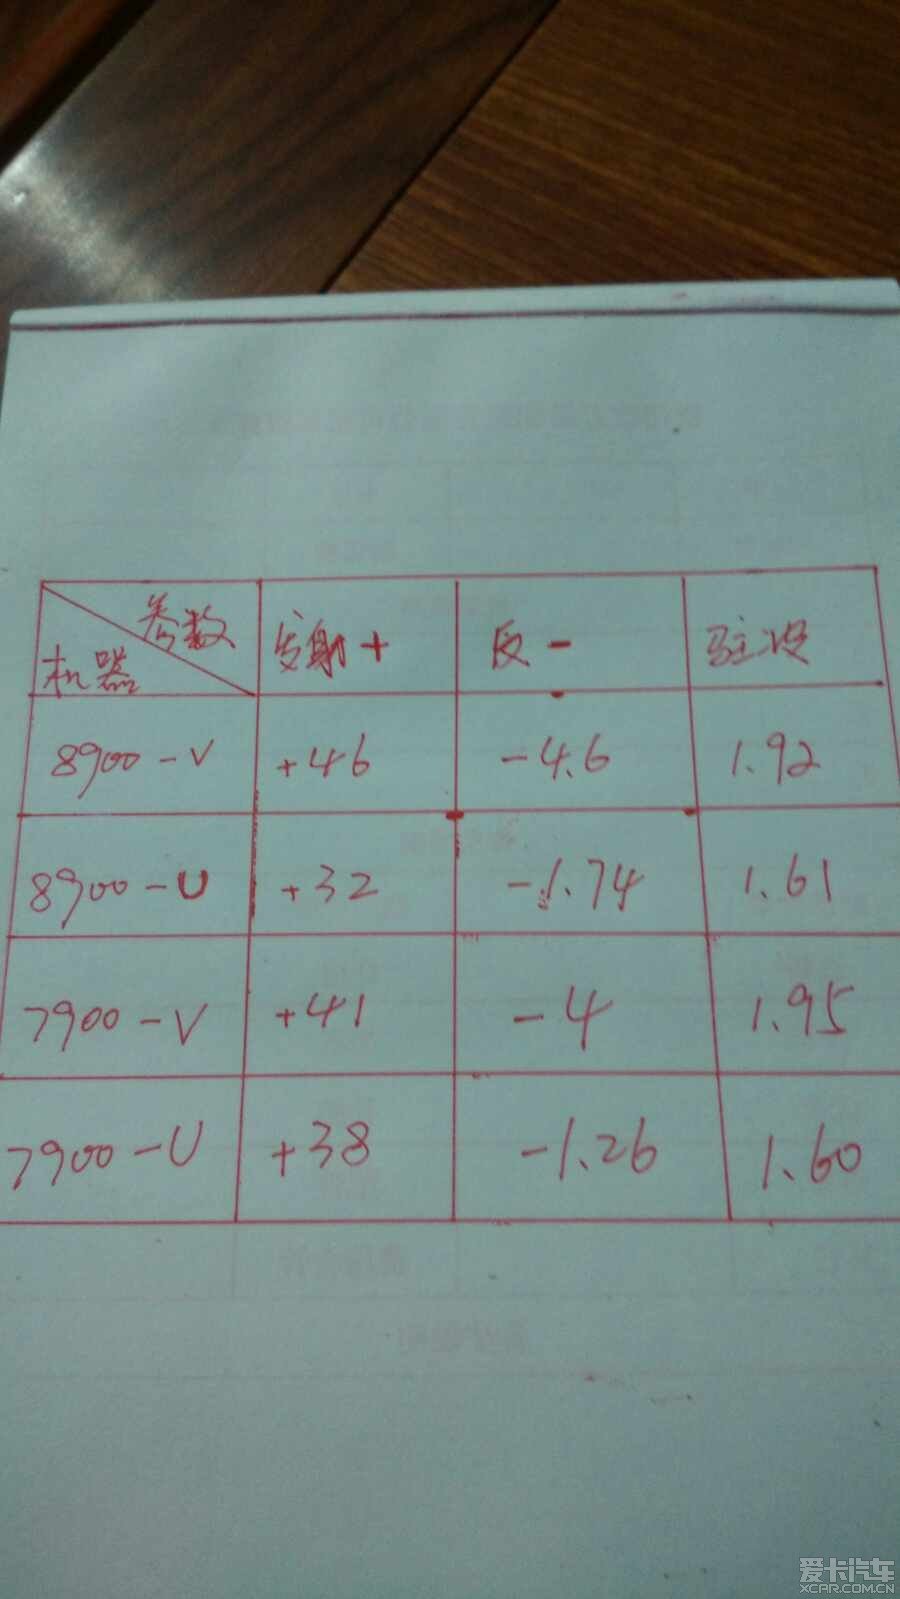 参数
机器 发射+ 反- 驻波
8900-V +46 -4.6 1.92
8900-U +32 -1.74 1.61
7900-V +41 -4 1.95
7900-U +38 -1.26 1.60
爱卡汽车
XCAR.COM.CN